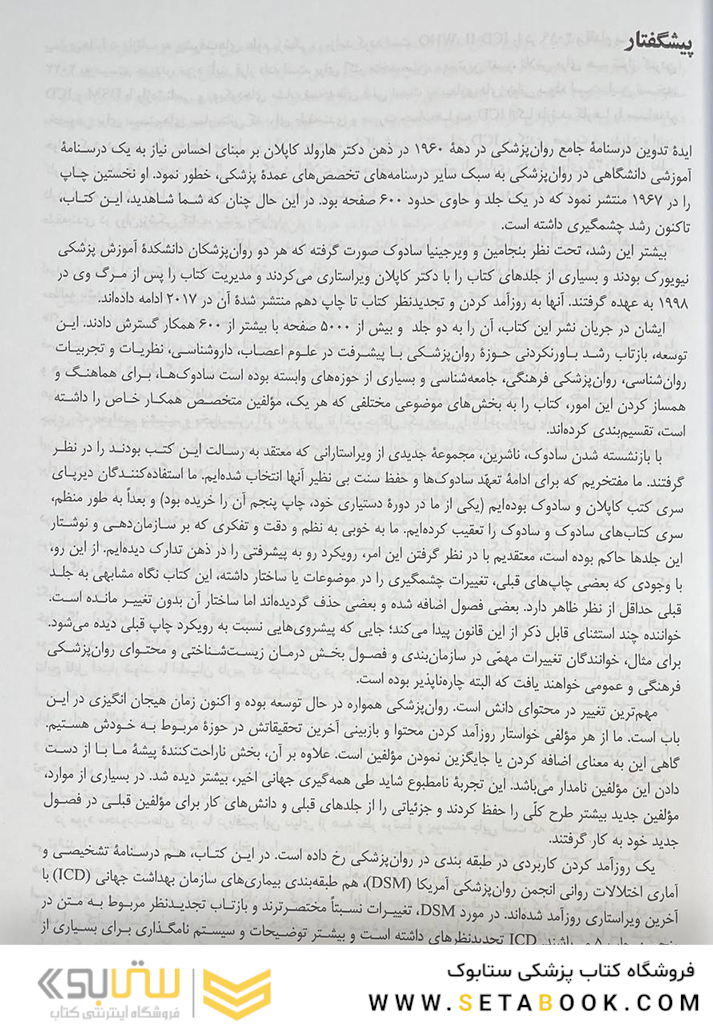 پیشگفتار
ایدهٔ تدوین درسنامهٔ جامع روان‌پزشکی در دههٔ ۱۹۶۰ در ذهن دکتر هارولد کاپلان بر مبنای احساس نیاز به یک درسنامهٔ
آموزشی دانشگاهی در روان‌پزشکی به سبک سایر درسنامه‌های تخصص‌های عمدهٔ پزشکی، خطور نمود. او نخستین چاپ
را در ۱۹۶۷ منتشر نمود که در یک جلد و حاوی حدود ۶۰۰ صفحه بود. در این حال چنان که شما شاهدید، این کتاب،
تاکنون رشد چشمگیری داشته است.
بیشتر این رشد، تحت نظر بنجامین و ویرجینیا سادوک صورت گرفته که هر دو روان‌پزشکان دانشکدهٔ آموزش پزشکی
نیویورک بودند و بسیاری از جلدهای کتاب را با دکتر کاپلان ویراستاری می‌کردند و مدیریت کتاب را پس از مرگ وی در
۱۹۹۸ به عهده گرفتند. آنها به روزآمد کردن و تجدیدنظر کتاب تا چاپ دهم منتشر شدهٔ آن در ۲۰۱۷ ادامه داده‌اند.
ایشان در جریان نشر این کتاب، آن را به دو جلد و بیش از ۵۰۰۰ صفحه با بیشتر از ۶۰۰ همکار گسترش دادند. این
توسعه، بازتاب رشد باورنکردنی حوزهٔ روان‌پزشکی با پیشرفت در علوم اعصاب، داروشناسی، نظریات و تجربیات
روان‌شناسی، روان‌پزشکی فرهنگی، جامعه‌شناسی و بسیاری از حوزه‌های وابسته بوده است سادوک‌ها، برای هماهنگ و
همساز کردن این امور، کتاب را به بخش‌های موضوعی مختلفی که هر یک، مؤلفین متخصص همکار خاص را داشته
است، تقسیم‌بندی کرده‌اند.
با بازنشسته شدن سادوک، ناشرین، مجموعهٔ جدیدی از ویراستارانی که معتقد به رسالت این کتب بودند را در نظر
گرفتند. ما مفتخریم که برای ادامهٔ تعهّد سادوک‌ها و حفظ سنت بی نظیر آنها انتخاب شده‌ایم. ما استفاده‌کنندگان دیرپای
سری کتب کاپلان و سادوک بوده‌ایم (یکی از ما در دورهٔ دستیاری خود، چاپ پنجم آن را خریده بود) و بعداً به طور منظم،
سری کتاب‌های سادوک و سادوک را تعقیب کرده‌ایم. ما به خوبی به نظم و دقت و تفکری که بر سازمان‌دهی و نوشتار
این جلدها حاکم بوده است، معتقدیم با در نظر گرفتن این امر، رویکرد رو به پیشرفتی را در ذهن تدارک دیده‌ایم. از این رو،
با وجودی که بعضی چاپ‌های قبلی، تغییرات چشمگیری را در موضوعات یا ساختار داشته، این کتاب نگاه مشابهی به جلد
قبلی حداقل از نظر ظاهر دارد. بعضی فصول اضافه شده و بعضی حذف گردیده‌اند اما ساختار آن بدون تغییر مانده است.
خواننده چند استثنای قابل ذکر از این قانون پیدا می‌کند؛ جایی که پیشروی‌هایی نسبت به رویکرد چاپ قبلی دیده می‌شود.
برای مثال، خوانندگان تغییرات مهمّی در سازمان‌بندی و فصول بخش درمان زیست‌شناختی و محتوای روان‌پزشکی
فرهنگی و عمومی خواهند یافت که البته چاره‌ناپذیر بوده است.
مهم‌ترین تغییر در محتوای دانش است. روان‌پزشکی همواره در حال توسعه بوده و اکنون زمان هیجان انگیزی در این
باب است. ما از هر مؤلفی خواستار روزآمد کردن محتوا و بازبینی آخرین تحقیقاتش در حوزهٔ مربوط به خودش هستیم.
گاهی این به معنای اضافه کردن یا جایگزین نمودن مؤلفین است. علاوه بر آن، بخش ناراحت‌کنندهٔ پیشهٔ ما با از دست
دادن این مؤلفین نامدار می‌باشد. این تجربهٔ نامطبوع شاید طی همه‌گیری جهانی اخیر، بیشتر دیده شد. در بسیاری از موارد،
مؤلفین جدید بیشتر طرح کلّی را حفظ کردند و جزئیاتی را از جلدهای قبلی و دانش‌های کار برای مؤلفین قبلی در فصول
جدید خود به کار گرفتند.
یک روزآمد کردن کاربردی در طبقه بندی در روان‌پزشکی رخ داده است. در این کتاب، هم درسنامهٔ تشخیصی و
آماری اختلالات روانی انجمن روان‌پزشکی آمریکا (DSM)، هم طبقه‌بندی بیماری‌های سازمان بهداشت جهانی (ICD) با
آخرین ویراستاری روزآمد شده‌اند. در مورد DSM، تغییرات نسبتاً مختصرترند و بازتاب تجدیدنظر مربوط به متن در
ICD تجدیدنظرهای داشته است و بیشتر توضیحات و سیستم نامگذاری برای بسیاری از
فروشگاه کتاب پزشکی ستابوک
WWW.SETABOOK.COM
ستابوک
فروشگاه اینترنتی کتاب